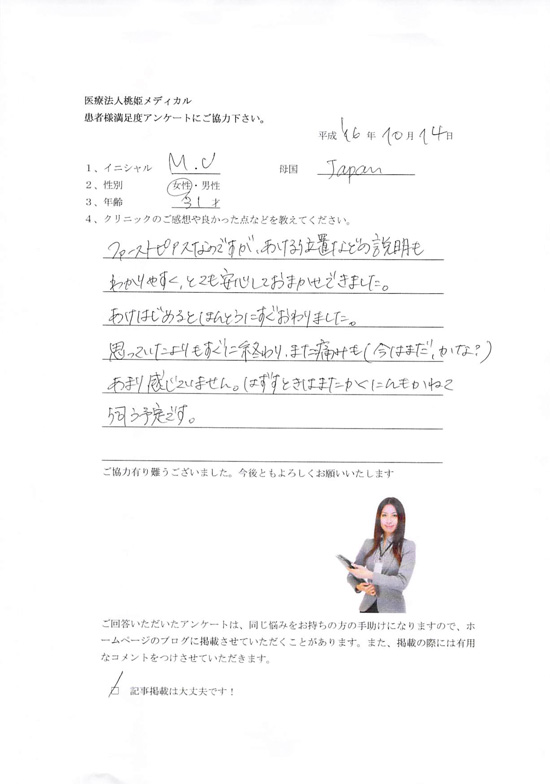 医療法人桃姫メディカル
患者様満足度アンケートにご協力下さい。
平成 '16 年 10 月 14 日
1、イニシャル M.U 母国 Japan
2、性別 女性・男性
3、年齢 31 才
4、クリニックのご感想や良かった点などを教えてください。
ファーストピアスなのですが、あける位置などの説明も
わかりやすく、とても安心しておまかせできました。
あけはじめるとほんとうにすぐおわりました。
思っていたよりもすぐに終わり、また痛みも(今はまだ、かな?)
あまり感じていません。はずすときはまたかくにんもかねて
伺う予定です。
ご協力有り難うございました。今後ともよろしくお願いいたします
ご回答いただいたアンケートは、同じ悩みをお持ちの方の手助けになりますので、ホ
ームページのブログに掲載させていただくことがあります。また、掲載の際には有用
なコメントをつけさせていただきます。
□ 記事掲載は大丈夫です!